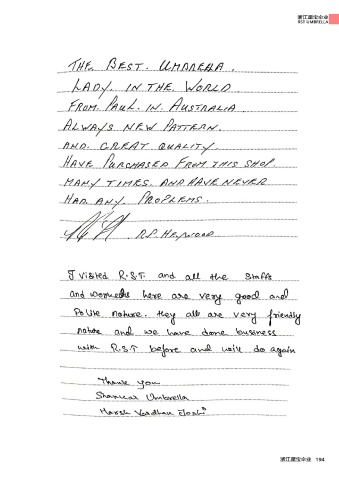 浙江星宝伞业
RST UMBRELLA
THE BEST. UMBRELLA.
LADY IN THE WORLD
FROM. PAUL. IN. AUSTRALIA
ALWAYS NEW PATTERN.
AND. GREAT QUALITY
HAVE PURCHASED FROM THIS SHOP
MANY TIMES. AND HAVE NEVER
HAD ANY PROPLEMS.
R.P. HEYWOOD
I visited R.S.T and all the Staffs
and workers here are very good and
Polite nature. they all are very friendly
nature and we have done business
with R.S.T before and will do again
Thank you
Shankar Umbrella
Harsh Vardhan Joshi
浙江星宝伞业 194